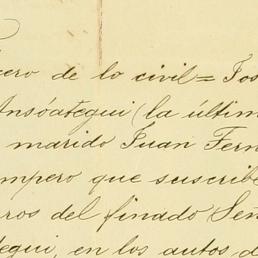 cero de lo civil = Jos
Ansóategui (la últim
marido Juan Fern
mpero que suscribe
ros del finado Señ
tegui, en los autos d